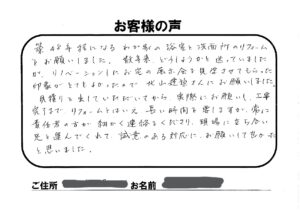 お客様の声
築48年程になるわが家の浴室と洗面所のリフォーム
をお願いしました。数年来どうしようかと迷っていました
が、リノベーションしたお宅の展示会を見学させてもらった
印象がとてもよかったので北山建設さんにお願いしました。
見積りを出していただいてから実際にお願いし、工事
完了までリフォームとはいえ長い時間を要しますが、常に
責任者の方が細かく連絡をくださり、現場に立ち会い
足を運んでくれて誠意のある対応に、お願いして良かった
と思いました。
ご住所 お名前